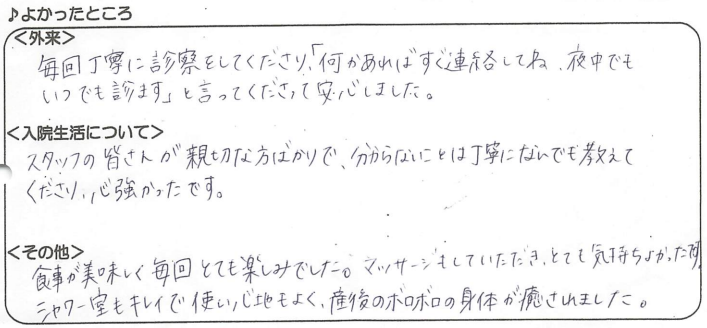 ♪よかったところ
<外来>
毎回丁寧に診察をしてくださり、「何かあればすぐ連絡してね、夜中でも
いつでも診ます」と言ってくださって安心しました。
<入院生活について>
スタッフの皆さんが親切な方ばかりで、分からないことは丁寧になんでも教えて
くださり、心強かったです。
<その他>
食事が美味しく毎回とても楽しみでした。マッサージもしていただき、とても気持ちよかったです。
シャワー室もキレイで使い心地もよく、産後のボロボロの身体が癒されました。